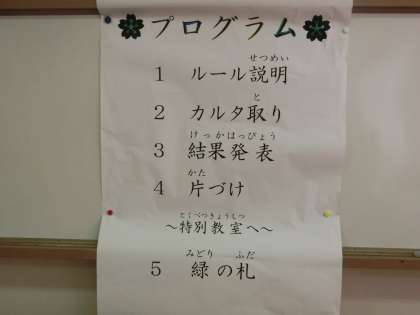 プログラム
1 ルール説明
せつめい
2 カルタ取り
と
3 結果発表
けっかはっぴょう
4 片づけ
かた
～特別教室へ～
とくべつきょうしつ
5 緑の札
みどり ふだ